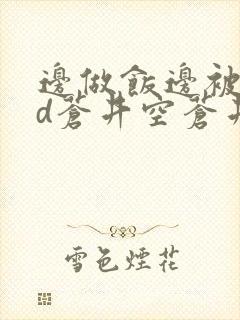 邊做飯邊被
d蒼井空蒼井
雪色煙花